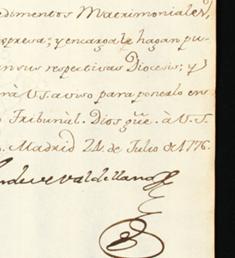 dimentos Matrimoniales,
spresa; y encargale hagan pu-
en sus respectivas Diocesis; y
rà V.S. aviso para ponerlo en s
Tribunàl. Dios gũe. à V.S.
Madrid 24. de Julio de 1776.